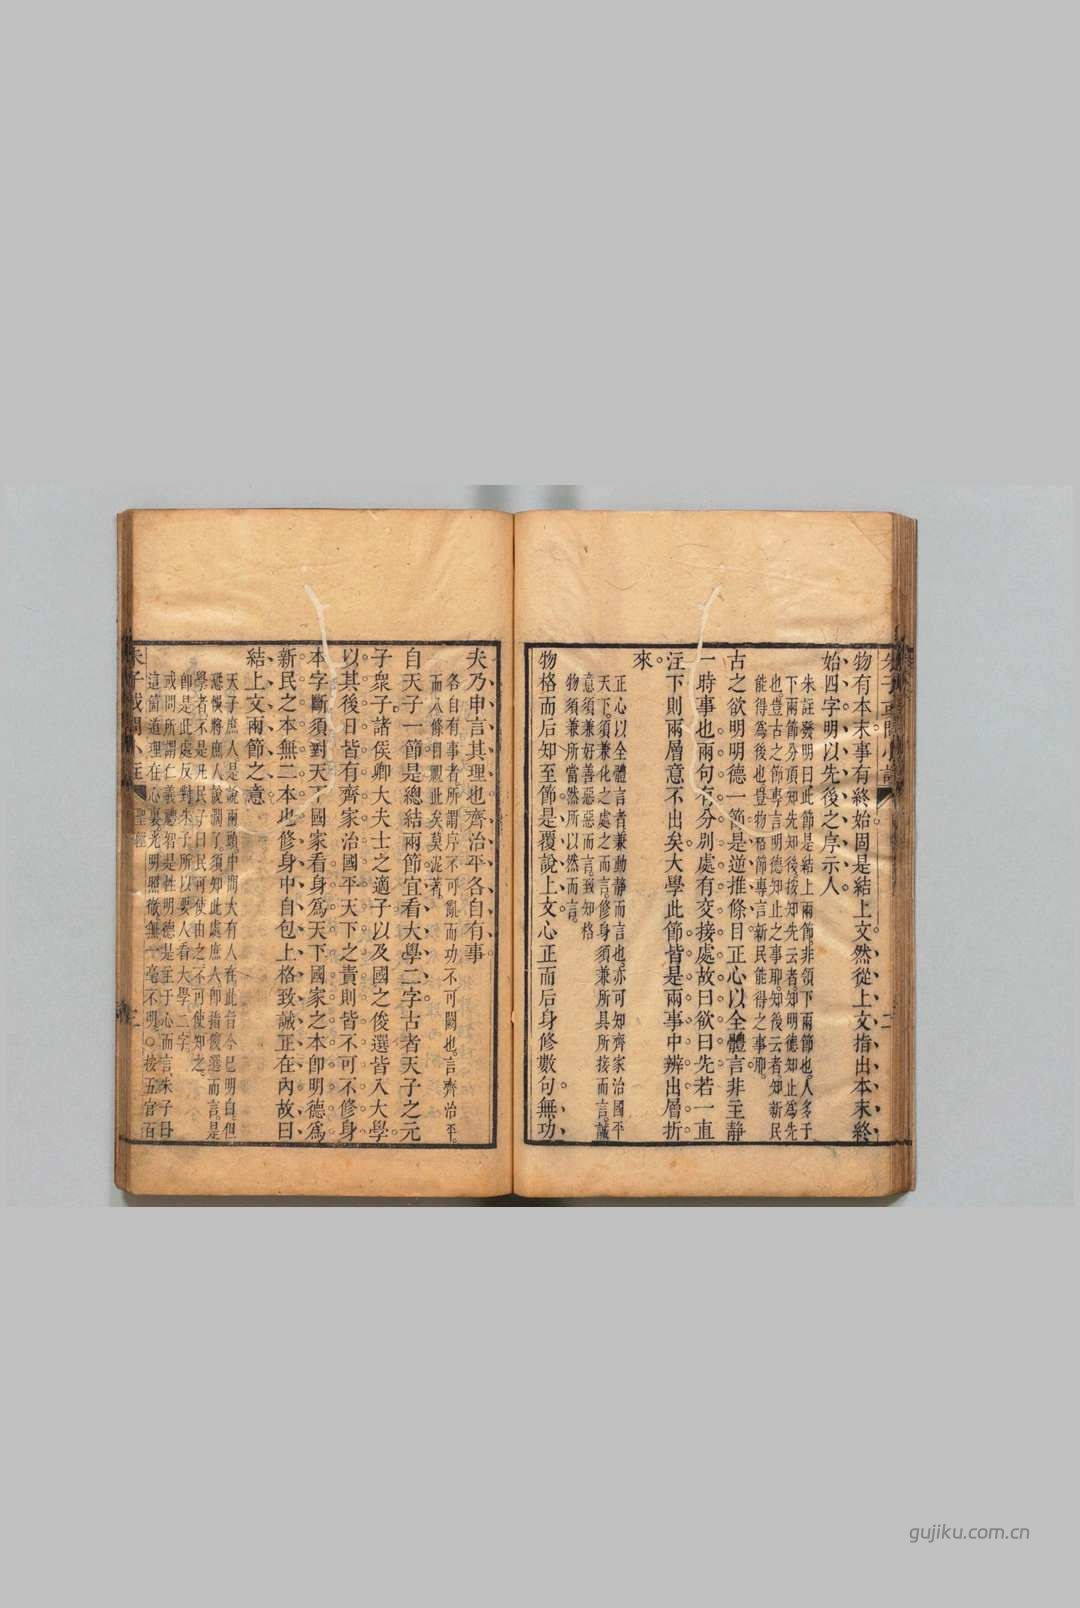 物有本末事有終始固是結上文然從上文指出本末終
始四字明以先後之序示人
朱註發明曰此節是結上兩節非領下兩節也人多于
下兩節分項知先知後按知先云者知明德知止爲先
也豈古之節專言明德知止之事耶知後云者知新民
能得爲後也豈物格節專言新民能得之事耶
古之欲明明德一節是逆推條目正心以全體言非主靜
一時事也兩句有分別處有交接處故曰欲曰先若一直
注下則兩層意不出矣大學此節皆是兩事中辨出層折
來
正心以全體言者兼動靜而言也亦可知齊家治國平
天下須兼化之處之而言修身須兼所具所接而言誠
意須兼好善惡惡而言致知格
物須兼所當然所以然而言
物格而后知至節是覆說上文心正而后身修數句無功
夫乃申言其理也齊治平各自有事
各自有事者所謂序不可亂而功不可闕也言齊治平
而八條目觀此矣莫泥著
自天子一節是總結兩節宜看大學二字古者天子之元
子衆子諸侯卿大夫士之適子以及國之俊選皆入大學
以其後日皆有齊家治國平天下之責則皆不可不修身
本字斷須對天下國家看身爲天下國家之本卽明德爲
新民之本無二本也修身中自包上格致誠正在內故曰
結上文兩節之意
天子庶人是說兩頭中間大有人在此旨今已明白但
恐悞將庶人說濶了須知此處庶人卽指俊選而言是
學者不是民民子曰民可使由之不可使知之
卽是此處反對朱子所以要人看大學二字
或問所謂仁義禮智是性明德是主于心而言朱子曰
這箇道理在心裏光明照徹無一毫不明○按五官百
朱子或問小註
聖經
三